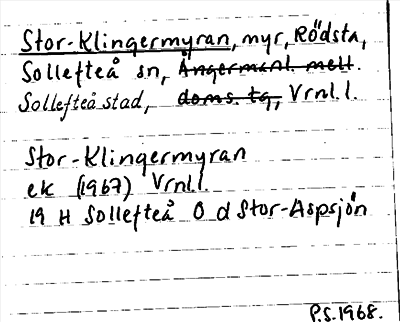 Stor-Klingermyran, myr, Rödsta,
Sollefteå sn, Ångermanl. mell.
Sollefteå stad, doms. tg, Vrnl. l.
Stor-Klingermyran
ek (1967) Vrnl.l.
19 H Sollefteå O d Stor-Aspsjön
P.S. 1968.